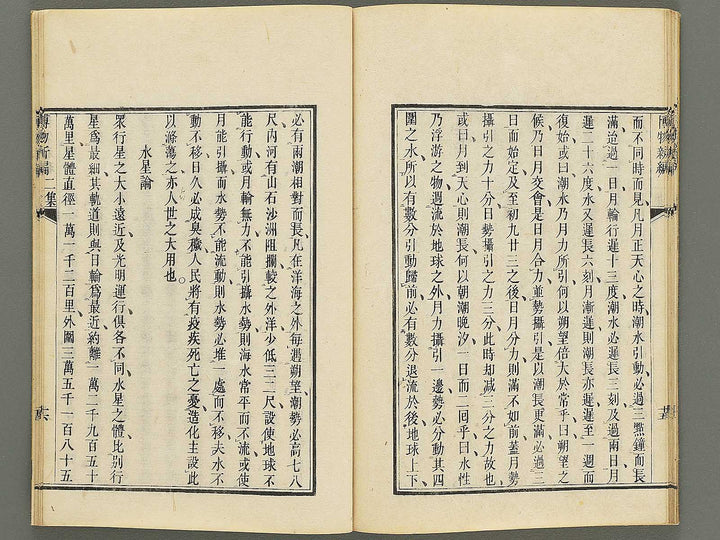 而不同時而見凡月正天心之時潮水引動必過三㸃鐘而長
滿迨過一日月輪行遲十三度潮水必遲長三刻及過兩日月
遲二十六度水又遲長六刻月漸遲則潮長亦遲遲至一週而
復始或曰潮水乃月力所引何以朔望倍大於常乎曰朔望之
候乃日月交會是日月合力並勢攝引是以潮長更滿必過三
日而始定及至初九廿三之後日月分力則滿不如前蓋月勢
攝引之力十分日勢攝引之力三分此時却减三分之力故也
或曰月到天心則潮長何以朝潮晚汐一日而二回乎曰水性
乃浮游之物週流於地球之外月力攝引一邊勢必分動其四
圍之水所以有數分引動歸前必有數分退流於後地球上下
必有兩潮相對而長凡在洋海之外每遇朔望潮勢必高七八
尺內河有山石沙洲阻攔較之外洋少低三二尺設使地球不
能行動或月輪無力不能引攝水勢則海水常平而不流或使
月能引攝而水勢不能流動則水勢必堆一處而不移夫水不
動不移日久必成臭穢人民將有疫疾死亡之憂造化主設此
以滌蕩之亦人世之大用也
水星論
衆行星之大小遠近及光明運行俱各不同水星之體比別行
星爲最細其軌道則與日輪爲最近約離一萬二千九百五十
萬里星體直徑一萬一千二百里外圍三萬五千一百八十五
博物新編 二集
十六